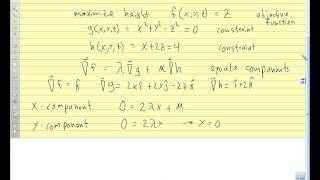 maximize height f(x,y,z) = z objective
function
g(x,y,z) = x² + y² - z² = 0 constraint
h(x,y,z) = x + 2z = 4 constraint
∇⃗f = λ∇⃗g + μ∇⃗h equate components
∇⃗f = k̂ ∇⃗g = 2xî + 2yĵ - 2zk̂ ∇⃗h = î + 2k̂
x-component 0 = 2λx + μ
y-component 0 = 2λy → y = 0